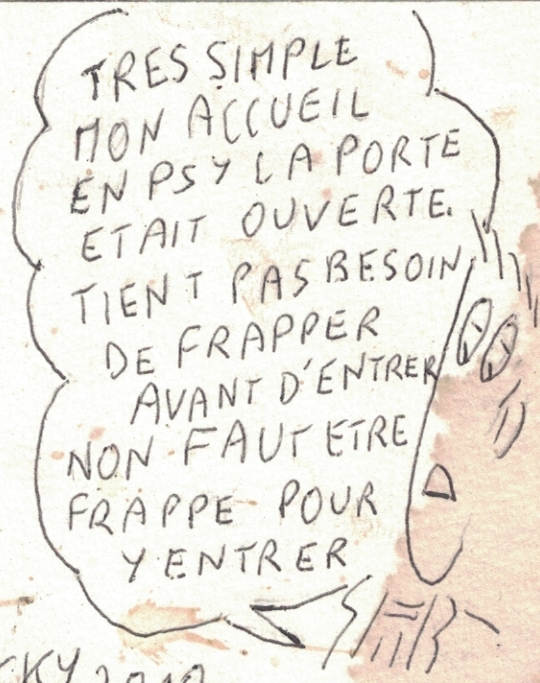 TRES SIMPLE
MON ACCUEIL
EN PSY LA PORTE
ETAIT OUVERTE.
TIENT PAS BESOIN
DE FRAPPER
AVANT D'ENTRER
NON FAUT ETRE
FRAPPE POUR
Y ENTRER